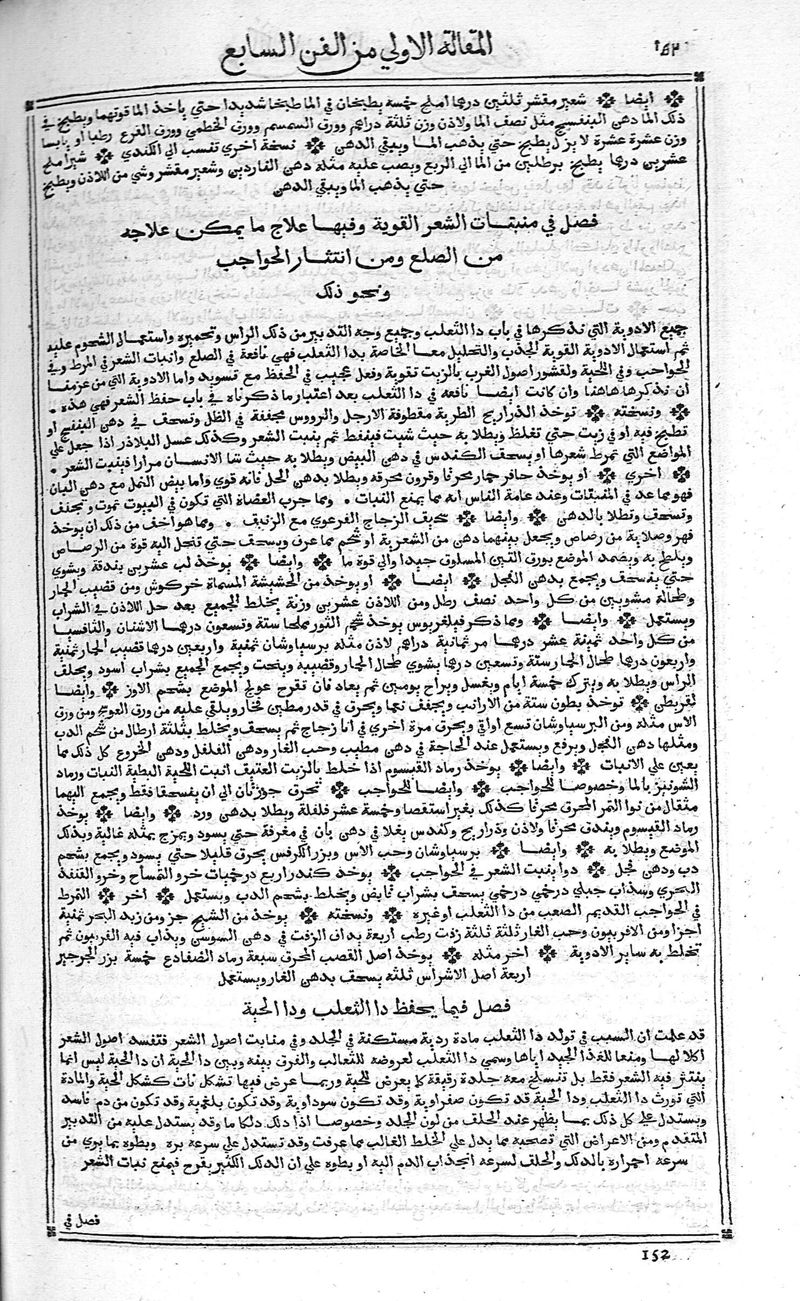 ١٥٢
المقالة الاولي من الفن السابع
ايضا شعير مقشر ثلثين درهما املج خمسة يطبخان في الما طبخا شديدا حتي ياخذ الما قوتهما ويطبخ في
ذلك الما دهن البنفسج مثل نصف الما ولاذن وزن ثلثة دراهم وورق السمسم وورق الخطمي وورق القرع رطبا او يابسا
وزن عشرة عشرة لا يزل يطبخ حتي يذهب الما ويبقي الدهن نسخة اخري تنسب الي الكندي شيرا ملج
عشرين درهما يطبخ برطلين من الما الي الربع ويصب عليه مثله دهن الناردين وشعير مقشر وشي من اللاذن ويطبخ
حتي يذهب الما ويبقي الدهن
فصل في منبتات الشعر القوية وفيها علاج ما يمكن علاجه
من الصلع ومن انتثار الحواجب
ونحو ذلك
جميع الادوية التي نذكرها في باب دا الثعلب وجميع وجه التدبير من ذلك الراس وتحميره واستعمال الشحوم عليه
ثم استعمال الادوية القوية الجذب والتحليل معا الخاصة بدا الثعلب فهي نافعة في الصلع وانبات الشعر في المرط وفي
الحواجب وفي اللحية ولقشور اصول الغرب بالزيت تقوية وفعل عجيب في الحفظ مع تسويد واما الادوية التي من عزمنا
ان نذكرها هاهنا وان كانت ايضا نافعة في دا الثعلب بعد اعتبار ما ذكرناه في باب حفظ الشعر فهي هذه
ونسخته توخذ الذراريح الطرية مقطوفة الارجل والرووس مجففة في الظل وتسحف في دهن البنفسج او
تطبخ فيه او في زيت حتي تغلظ ويطلا به حيث شيت فينفط ثم ينبت الشعر وكذلك عسل البلاذر اذا جعل علي
المواضع التي تمرط شعرها او يسحف الكندس في دهن البيض ويطلا به حيث شا الانسان مرارا فينبت الشعر
اخري او يوخذ حافر حمار محرقا وقرون محرقه ويطلا بدهن الحل فانه قوي واما بيض النمل مع دهن البان
فهو مما عد في المنبتات وعند عامة الناس انه مما يمنع النبات ومما جرب العضاة التي تكون في البيوت تموت وتجفف
وتسحف وتطلا بالدهن وايضا سحيف الزجاج الفرعوي مع الزنبف ومما هو اخف من ذلك ان يوخذ
فهر وصلاية من رصاص ويجعل بينهما دهن من الشعرية او شحم مما عرف ويسحف حتي تنحل اليه قوة من الرصاص
ويلطخ به ويضمد الموضع بورق التين المسلوق جيدا والي قوة ما وايضا يوخذ لب عشرين بندقة ويشوي
حتي ينسحف ويجمع بدهن الفجل ايضا او يوخذ من الحشيشة المسماة خركوش ومن قضيب الحمار
وطحاله مشويين من كل واحد نصف رطل ومن اللاذن عشرين وزنة يخلط الجميع بعد حل اللاذن في الشراب
ويستعمل وايضا ومما ذكر فيلغريوس يوخذ شحم الثور مملحا ستة وتسعون درهما الاشنان والثافسيا
من كل واحد ثمينة عشر درهما مر ثمانية دراهم لاذن مثله برسياوشان ثمنية واربعين درهما قضيب الحمار ثمنية
واربعون درهما طحال الحمار ستة وتسعين درهما يشوي طحال الحمار وقضيبه وينحت ويجمع الجميع بشراب اسود ويحلف
الراس ويطلا به ويترك خمسة ايام ويغسل ويراح يومين ثم يعاد فان تقرح عولج الموضع بشحم الاوز وايضا
لقريطن توخذ بطون ستة من الارانب ويجفف نعما ويحرق في قدر مطين فخار ويلقي عليه من ورق العوسج ومن ورق
الاس مثله ومن البرسياوشان تسع اواقي ويحرق مرة اخري في انا زجاج ثم يسحف ويخلط بثلثة ارطال من شحم الدب
ومثلها دهن الفجل ويرفع ويستعمل عند الحاجة في دهن مطيب وحب الغار ودهن الفلفل ودهن الخروع كل ذلك مما
يعين علي الانبات وايضا يوخذ رماد القيسوم اذا خلط بالزيت العتيف انبت اللحية البطية النبات ورماد
الشونيز بالما وخصوصا للحواجب وايضا للحواجب تحرق جوزتان الي ان ينسحقا فقط ويجمع اليهما
مثقال من نوا التمر المحرق محرقا كذلك بغير استقصا وخمسة عشر فلفلة ويطلا بدهن ورد وايضا يوخذ
رماد القيسوم وبندق محرقا ولاذن وذراريح وكندس يغلا في دهن بان في مغرفة حتي يسود ويمزج بمثله غالية ويدلك
الموضع ويطلا به وايضا برسياوشان وحب الاس وبزر الكرفس يحرق قليلا حتي يسود ويجمع بشحم
دب ودهن فجل دوا ينبت الشعر في الحواجب يوخذ كندر اربع درخميات خرو التمساح وخرو القنفذ
البحري وسذاب جبلي درخمي درخمي يسحف بشراب قابض ويخلط بشحم الدب ويستعمل اخر التمرط
في الحواجب القديم الصعب من دا الثعلب او غيره ونسخته يوخذ من الشيح جز ومن زبد البحر ثمنية
اجزا ومن الافربيون وحب الغار ثلثة ثلثة زفت رطب اربعة يداف الزفت في دهن السوسن ويذاب فيه الفربيون ثم
تخلط به ساير الادوية اخر مثله يوخذ اصل القصب المحرق سبعة رماد الضفادع خمسة بزر الجرجير
اربعة اصل الاشراس ثلثه يسحف بدهن الغار ويستعمل
فصل فيما يحفظ دا الثعلب ودا الحية
قد علمت ان السبب في تولد دا الثعلب مادة ردية مستكنة في الجلد وفي منابت اصول الشعر فتفسد اصول الشعر
اكلا لها ومنعا للغذا الجيد اياها وسمي دا الثعلب لعروضه للثعالب والفرق بينه وبين دا الحية ان دا الحية ليس انما
ينتثر فيه الشعر فقط بل تنسلخ معه جلدة رقيقة كما يعرض للحية وربما عرض فيها تشكل نات كشكل الحية والمادة
التي تورث دا الثعلب ودا الحية قد تكون صفراوية وقد تكون سوداوية وقد تكون بلغمية وقد تكون من دم فاسد
ويستدل علي كل ذلك بما يظهر عند الحلف من لون الجلد وخصوصا اذا دلك دلكا ما وقد يستدل عليه من التدبير
المتقدم ومن الاعراض التي تصحبه مما يدل علي الخلط الغالب مما عرفت وقد تستدل علي سرعة بره وبطوه بما يوي من
سرعة احمراره بالدلك والحلف لسرعة انجذاب الدم اليه او بطوه علي ان الدلك الكثير يقرح فيمنع نبات الشعر
فصل في
152